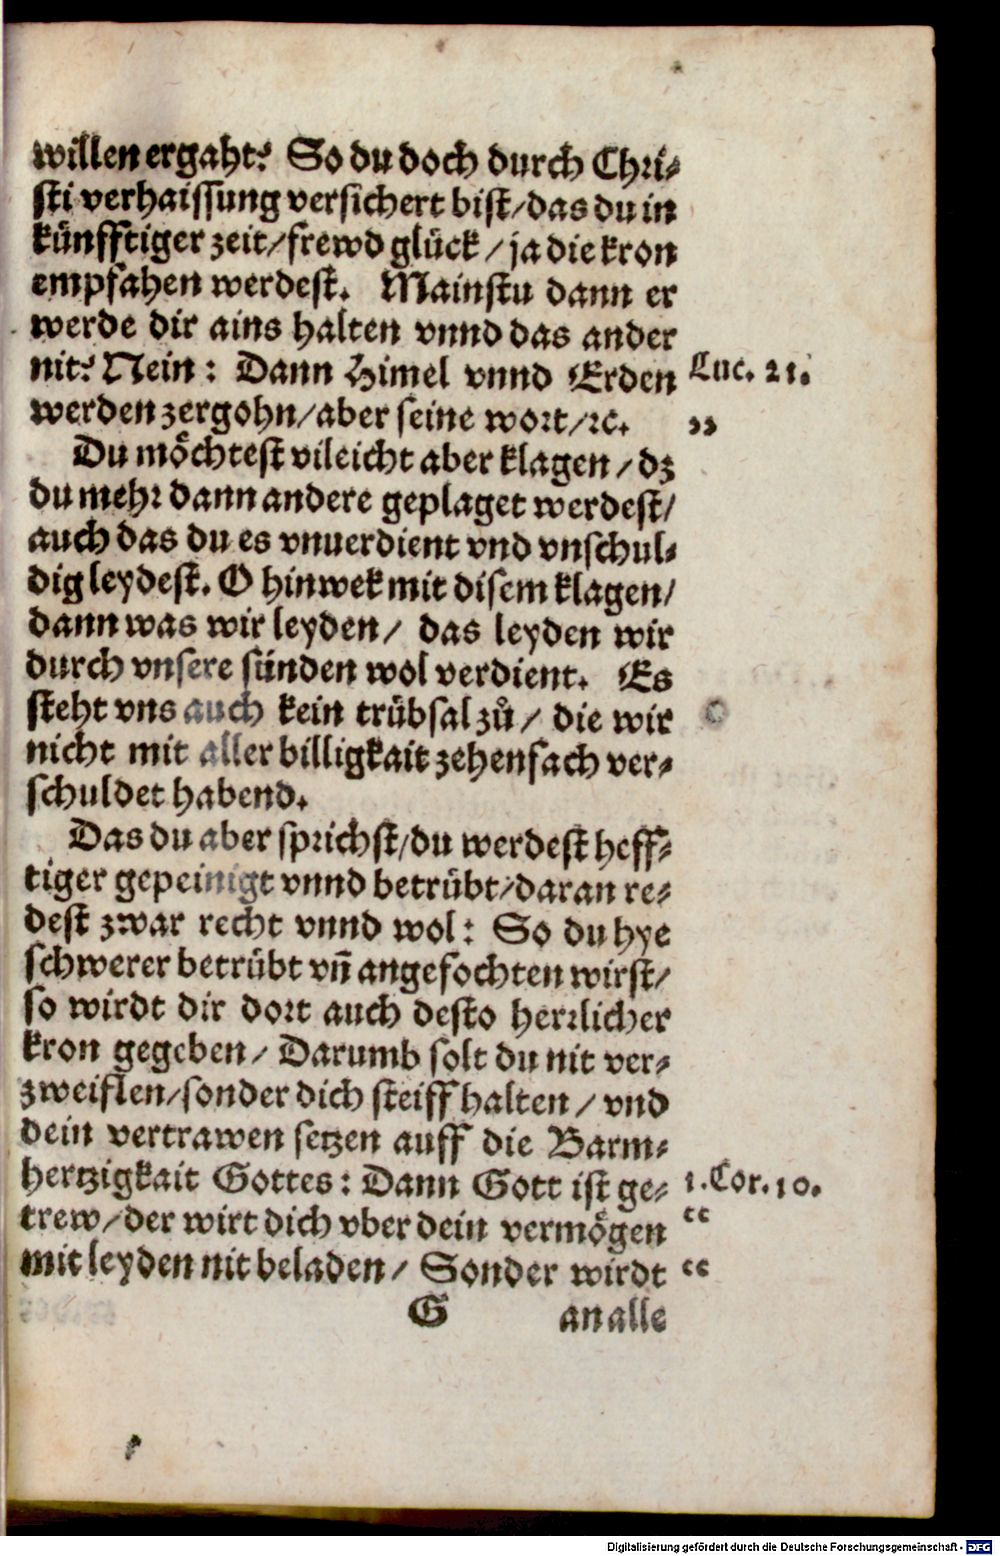 willen ergaht? So du doch durch Chri⸗
sti verhaissung versichert bist/das du in
künfftiger zeit/frewd glück/ja die kron
empfahen werdest. Mainstu dann er
werde dir ains halten vnnd das ander
nit? Nein: Dann Himel vnnd Erden Luc. 21.
werden zergohn/aber seine wort/ꝛc. ,,
Du möchtest vileicht aber klagen/dz
du mehr dann andere geplaget werdest/
auch das du es vnuerdient vnd vnschul⸗
dig leydest. O hinwek mit disem klagen/
dann was wir leyden/ das leyden wir
durch vnsere sünden wol verdient. Es
steht vns auch kein trübsal zů/ die wir
nicht mit aller billigkait zehenfach ver⸗
schuldet habend.
Das du aber sprichst/du werdest heff⸗
tiger gepeinigt vnnd betrübt/daran re⸗
dest zwar recht vnnd wol: So du hye
schwerer betrübt vñ angefochten wirst/
so wirdt dir dort auch desto herrlicher
kron gegeben/ Darumb solt du nit ver⸗
zweiflen/sonder dich steiff halten/ vnd
dein vertrawen setzen auff die Barm⸗
hertzigkait Gottes: Dann Gott ist ge⸗ 1. Cor. 10.
trew/der wirt dich vber dein vermögen “
mit leyden nit beladen/ Sonder wirdt “
G an alle
Digitalisierung gefördert durch die Deutsche Forschungsgemeinschaft - DFG